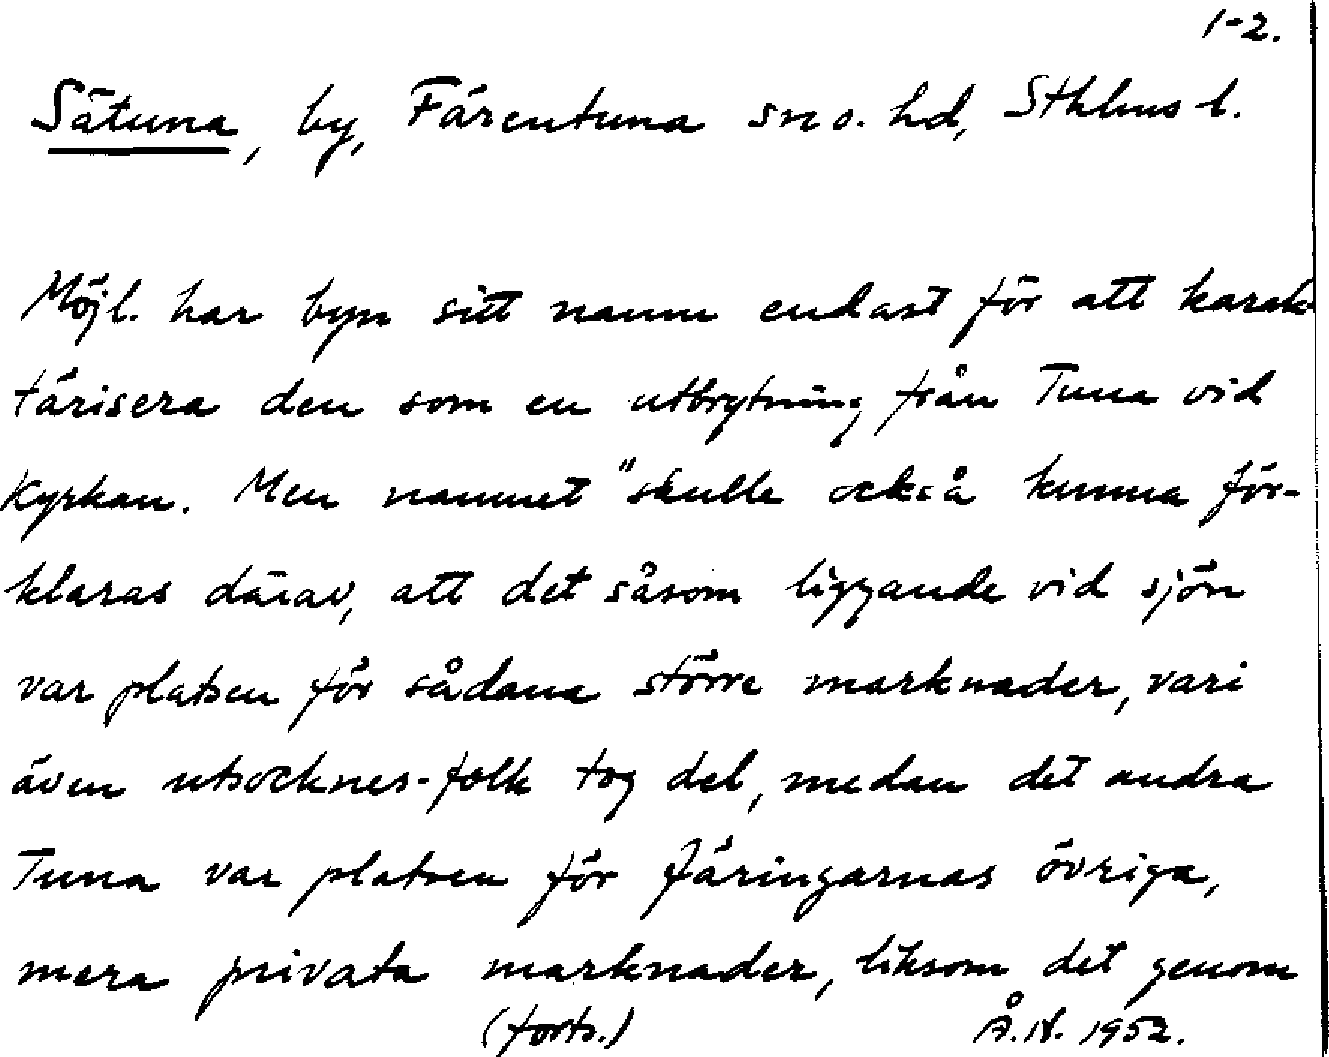 1-2.
Sätuna, by, Färentuna sn o. hd, Sthlms l.
Möjl. har byn sitt namn endast för att karak-
tärisera den som en utbrytning från Tuna vid
kyrkan. Men namnet "skulle också kunna för-
klaras därav, att det såsom liggande vid sjön
var platsen för sådana större marknader, vari
även utsocknes-folk tog del, medan det andra
Tuna var platsen för färingarnas övriga,
mera privata marknader, liksom det genom
(forts.) Å.N. 1952.